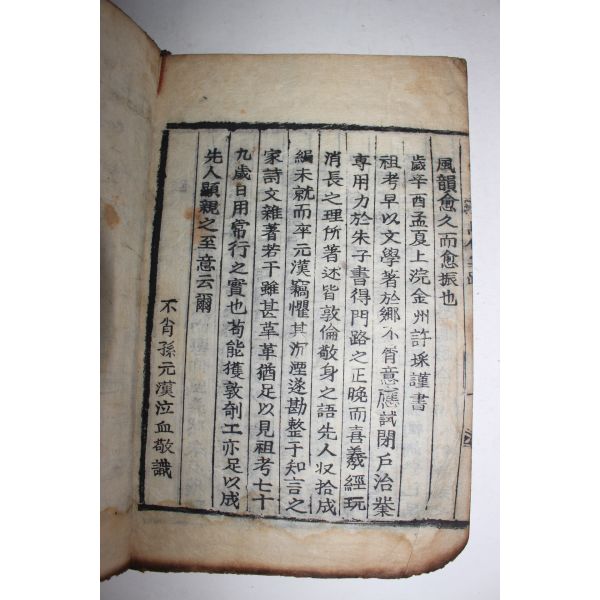 風韻愈久而愈振也
歲辛酉孟夏上浣金州許埰謹書
祖考早以文學著於鄕不肯意應試閉戶治業
專用力於朱子書得門路之正晩而喜羲經玩
消長之理所著述皆敦倫敬身之語先人収拾成
編未就而卒元漢竊懼其沉湮遂勘整于知言之
家詩文雜著若干雖甚草革猶足以見祖考七十
九歲日用常行之實也苟能獲敦剞工亦足以成
先人顯親之至意云爾
不肖孫元漢泣血敬識